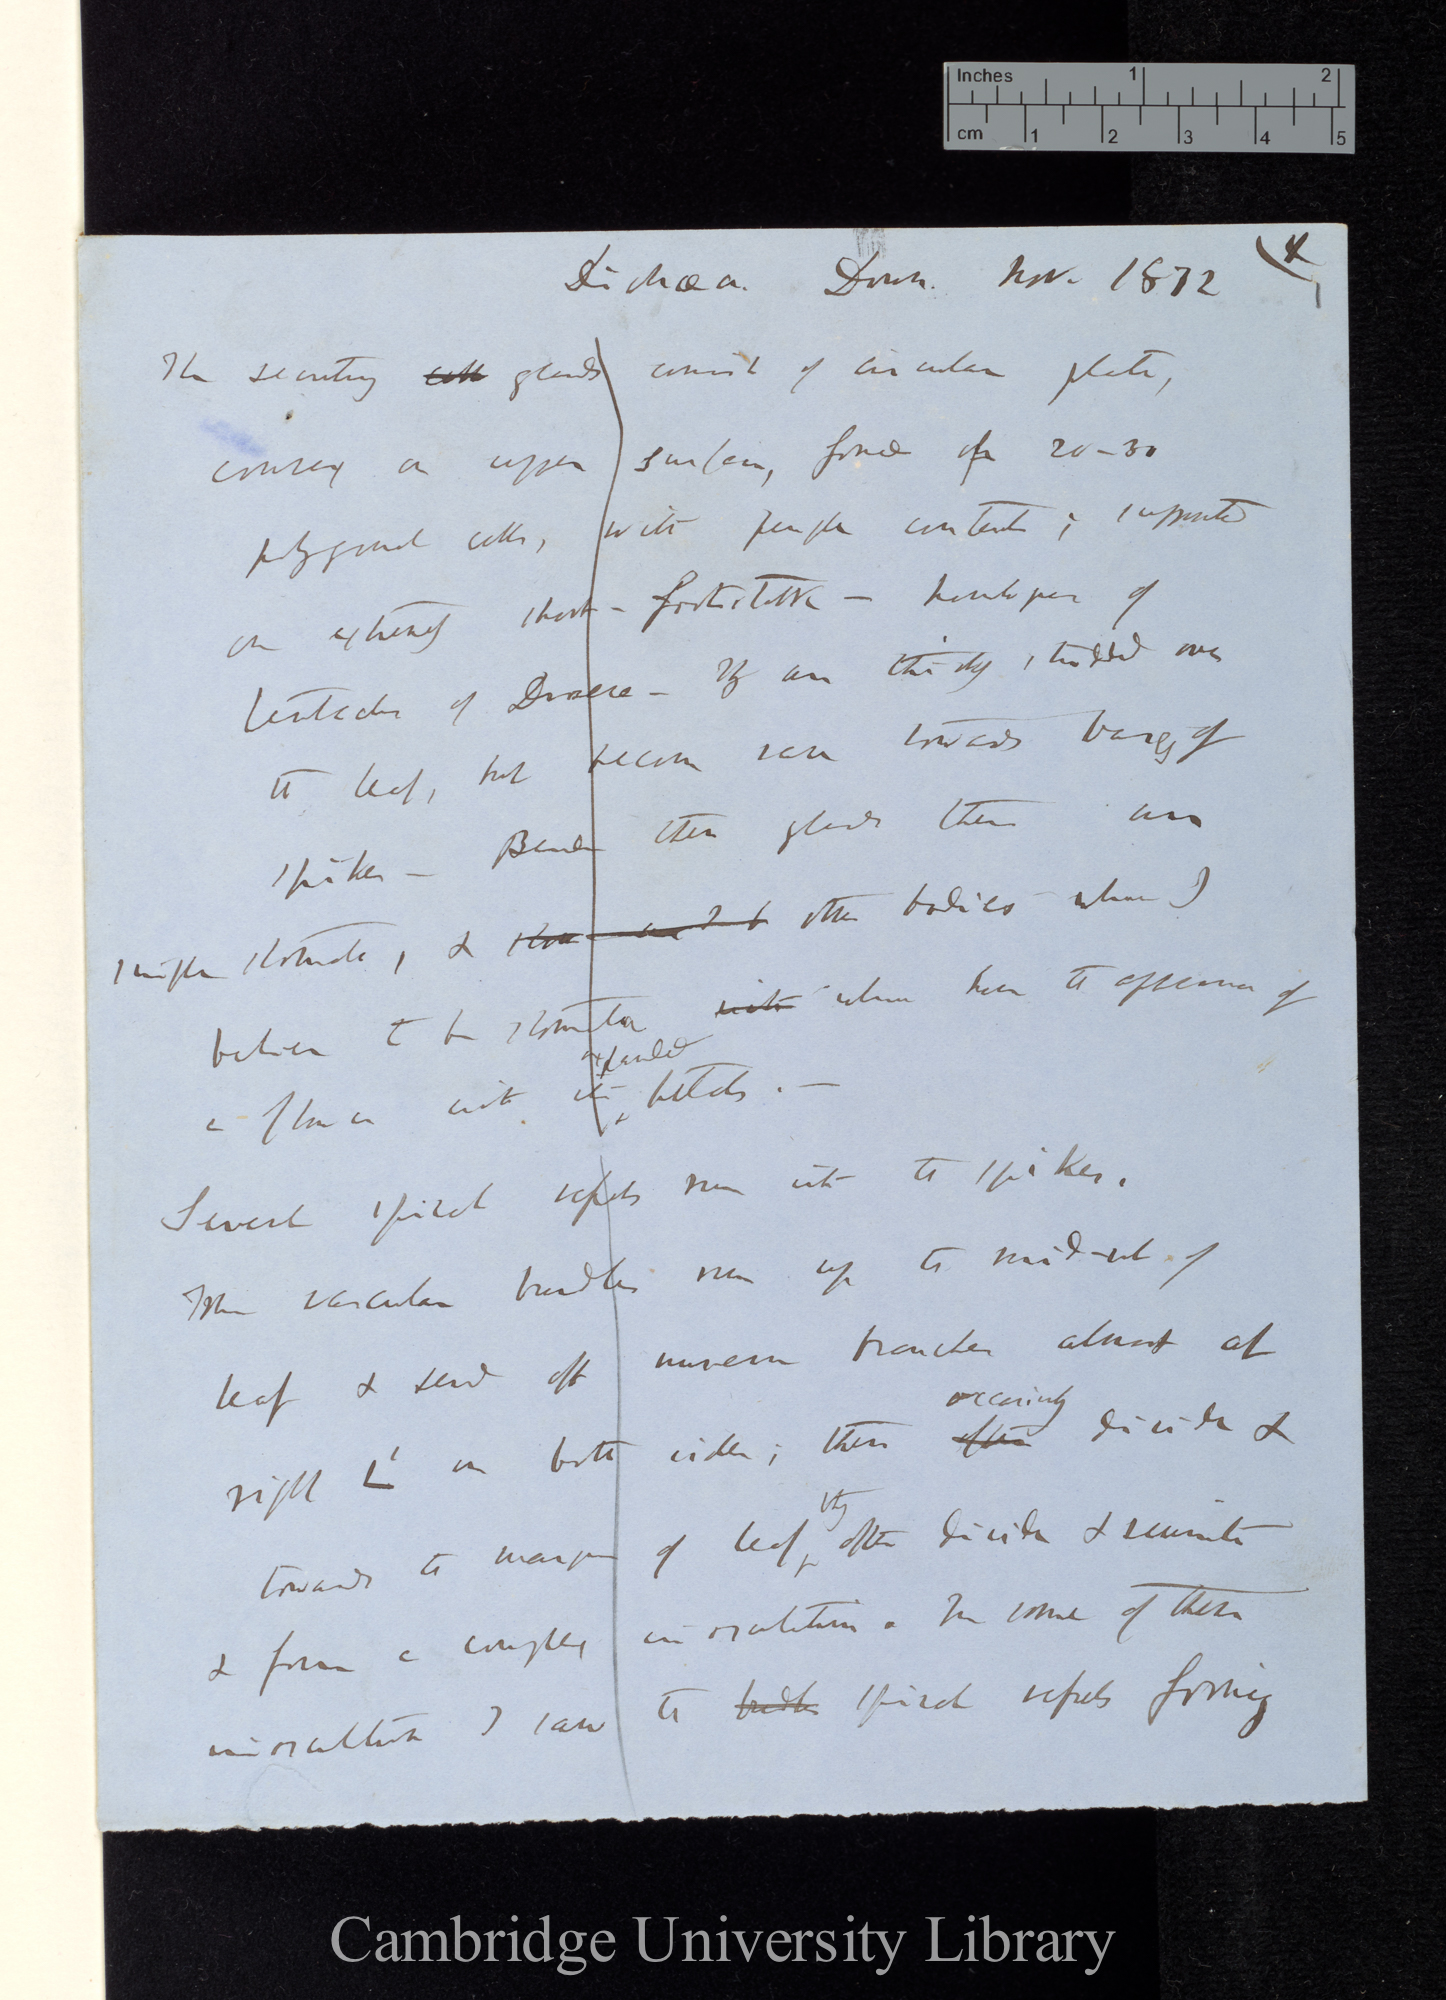 Inches 1 2
cm 1 2 3 4 5
Dionæa. Down. Nov. 1872 (4
The secreting cells glands consist of circular plate,
convex on upper surface, formed of 20–30
polygonal cells, with purple contents; supported
on extremely short – footstalk – homologues of
tentacles of Drosera – They are thickly studded over
the leaf, but become rare towards bases of
spikes – Besides these glands there are
simple stomata, & other bodies whi I
believe to be stomata with when have the appearance of
a flower with its expanded petals. —
Several spiral vessels run into the spikes.
The vascular bundles run up the mid-rib of
leaf & send off numerous branches almost at
right L^s on both sides; these often occasionally divide &
towards the margin of leaf, they often divide & reunite
& form a complex inosculation. In some of these
inosculations I saw the bundles spiral vessels forming
Cambridge University Library